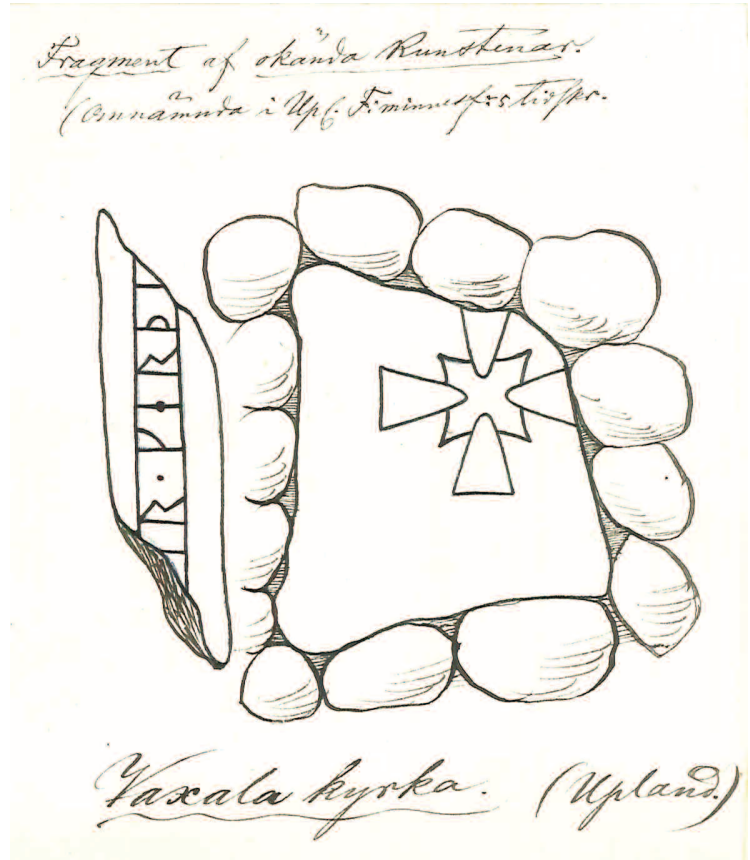 Fragment af okända Runstenar.
(omnämnda i Upl. F:minnesf:s tidskr.
ᛁᚱ᛫ᚹᛁᚱᚦᛁ
Vaxala kyrka. (Upland.)